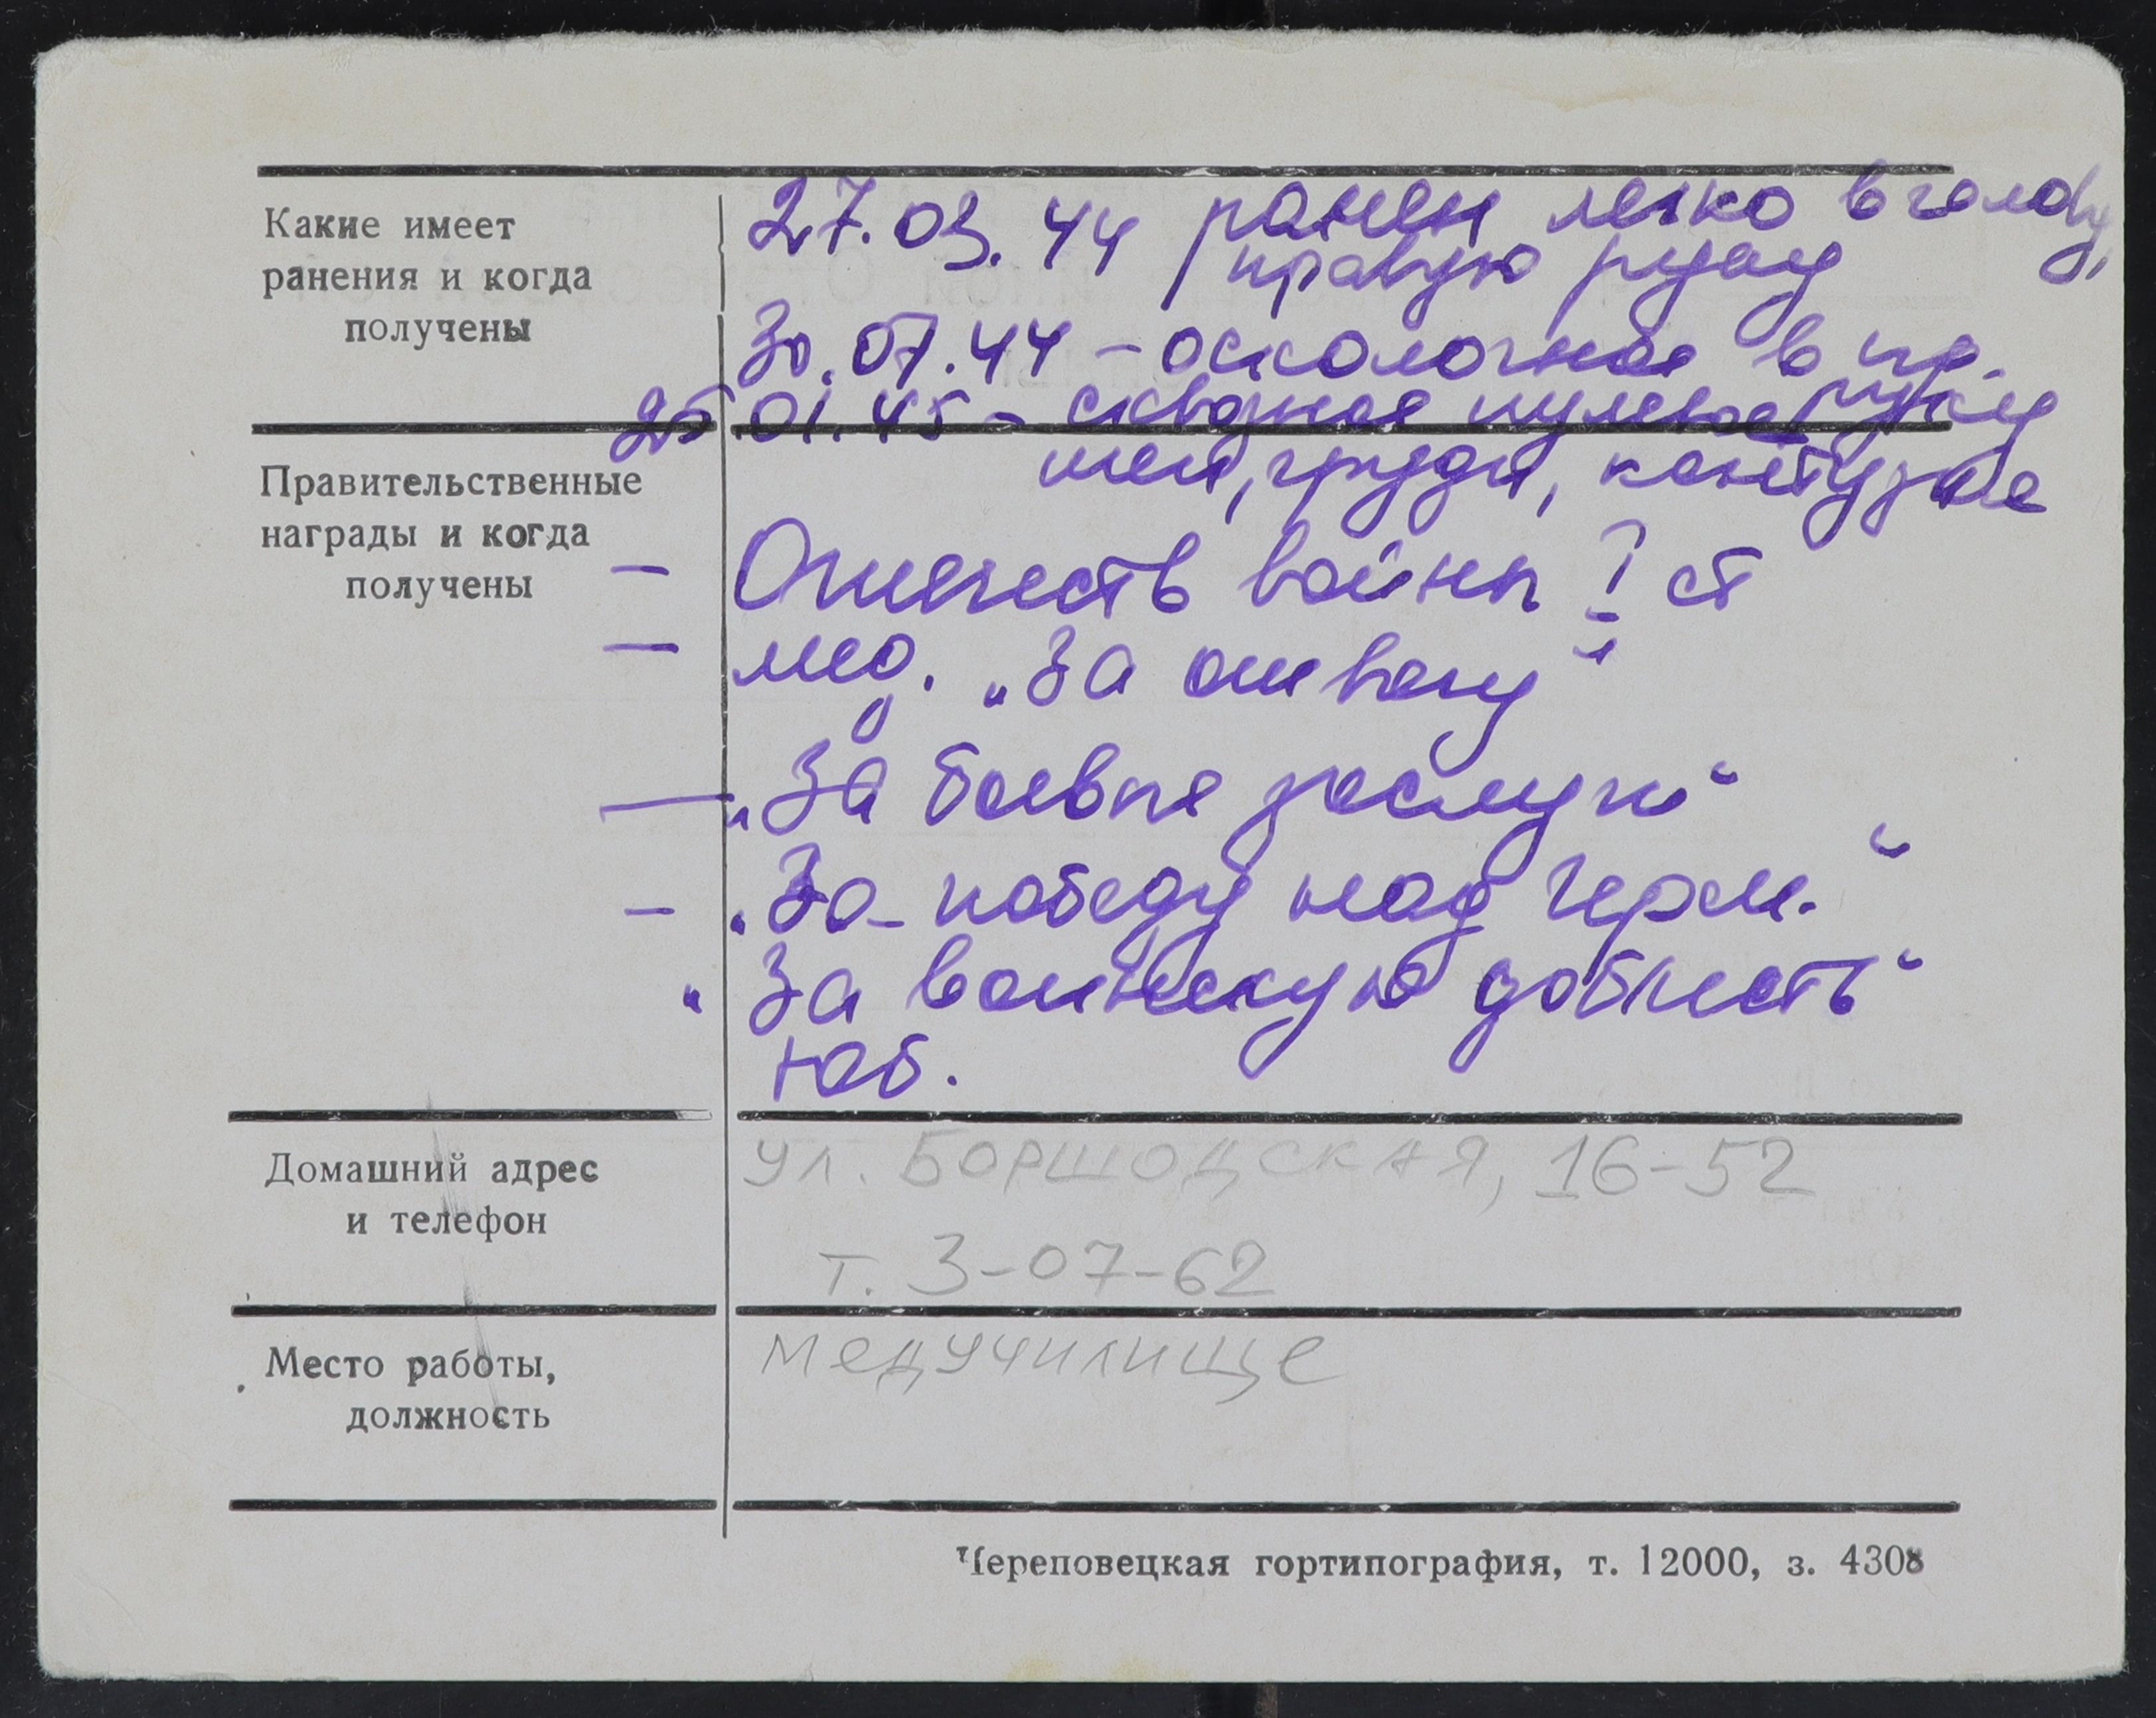 Какие имеет
ранения и когда
получены
27.03.44 ранен легко в голову,
правую руку
30.07.44 - осколочное в пр.
руку
25.01.45 - сквозное пулевое
шеи, груди, контузия
Правительственные
награды и когда
получены
- Отечеств войны ? ст
- мед. „За отвагу“
- „За боевые заслуги“
- „За победу над Герм.“
„За воинскую доблесть“
юб.
Домашний адрес
и телефон
ул. Боршодская, 16-52
т. 3-07-62
Место работы,
должность
медучилище
Череповецкая гортипография, т. 12000, з. 4308